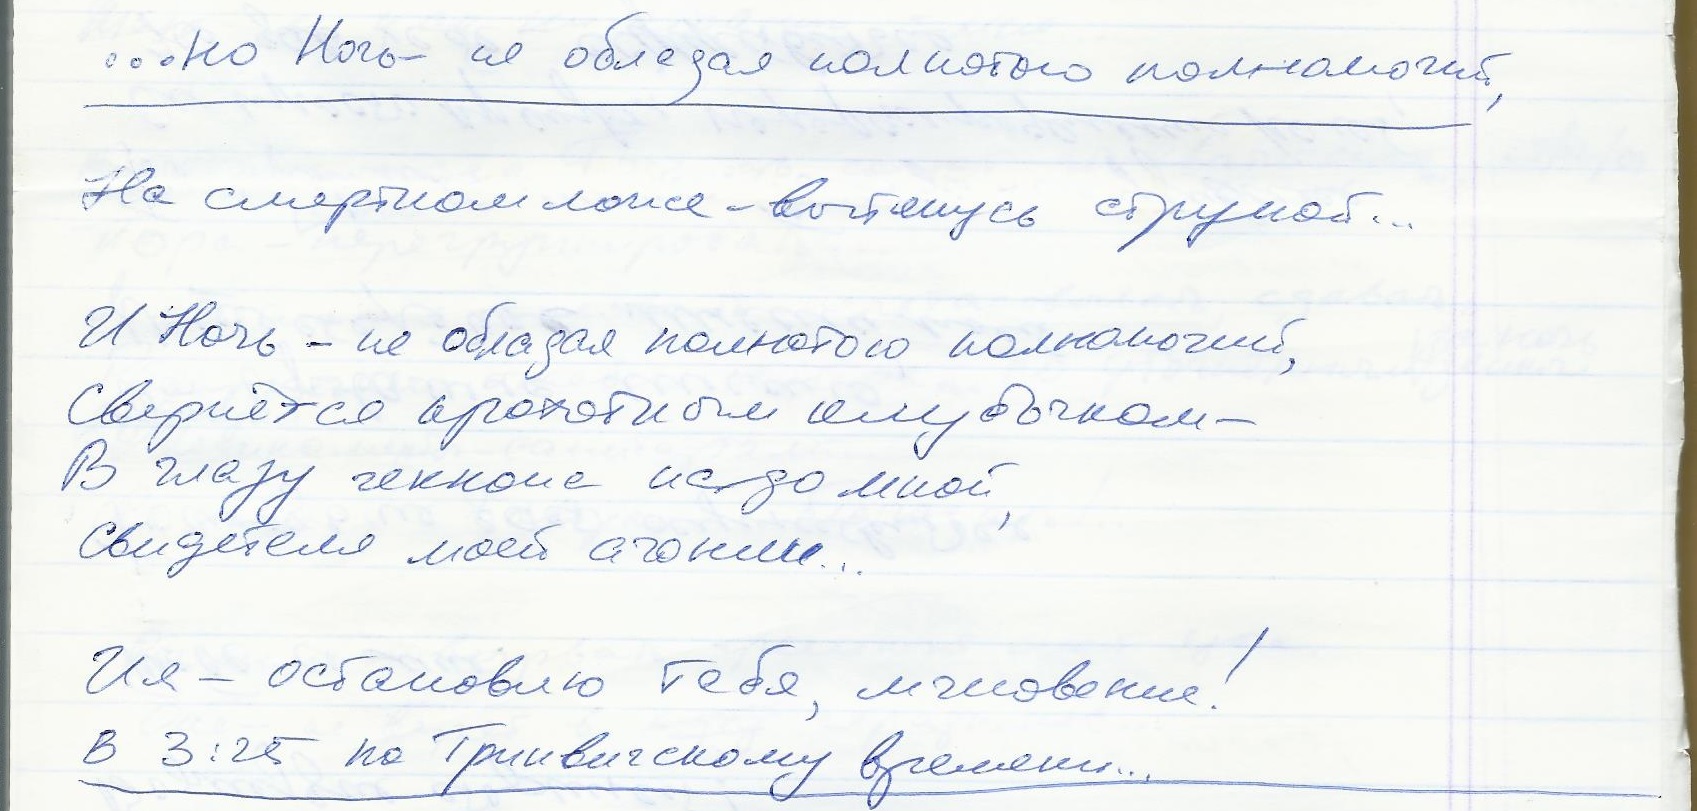 ...но Ночь – не обладая полнотою полномочий,
На смертном ложе – вытянусь струной...
И Ночь – не обладая полнотою полномочий,
Свернётся крохотным клубочком –
В глазу геккона надо мной,
Свидетеля моей агонии...
И я – остановлю тебя, мгновение!
В 3:25 по Гринвичскому времени...